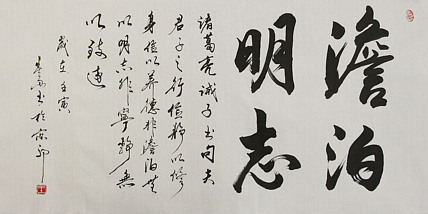 澹泊
明志
诸葛亮诫子书句夫
君子之行俭静以修
身俭以养德非澹泊无
以明志非宁静无
以致远
岁在壬寅
书於京郊